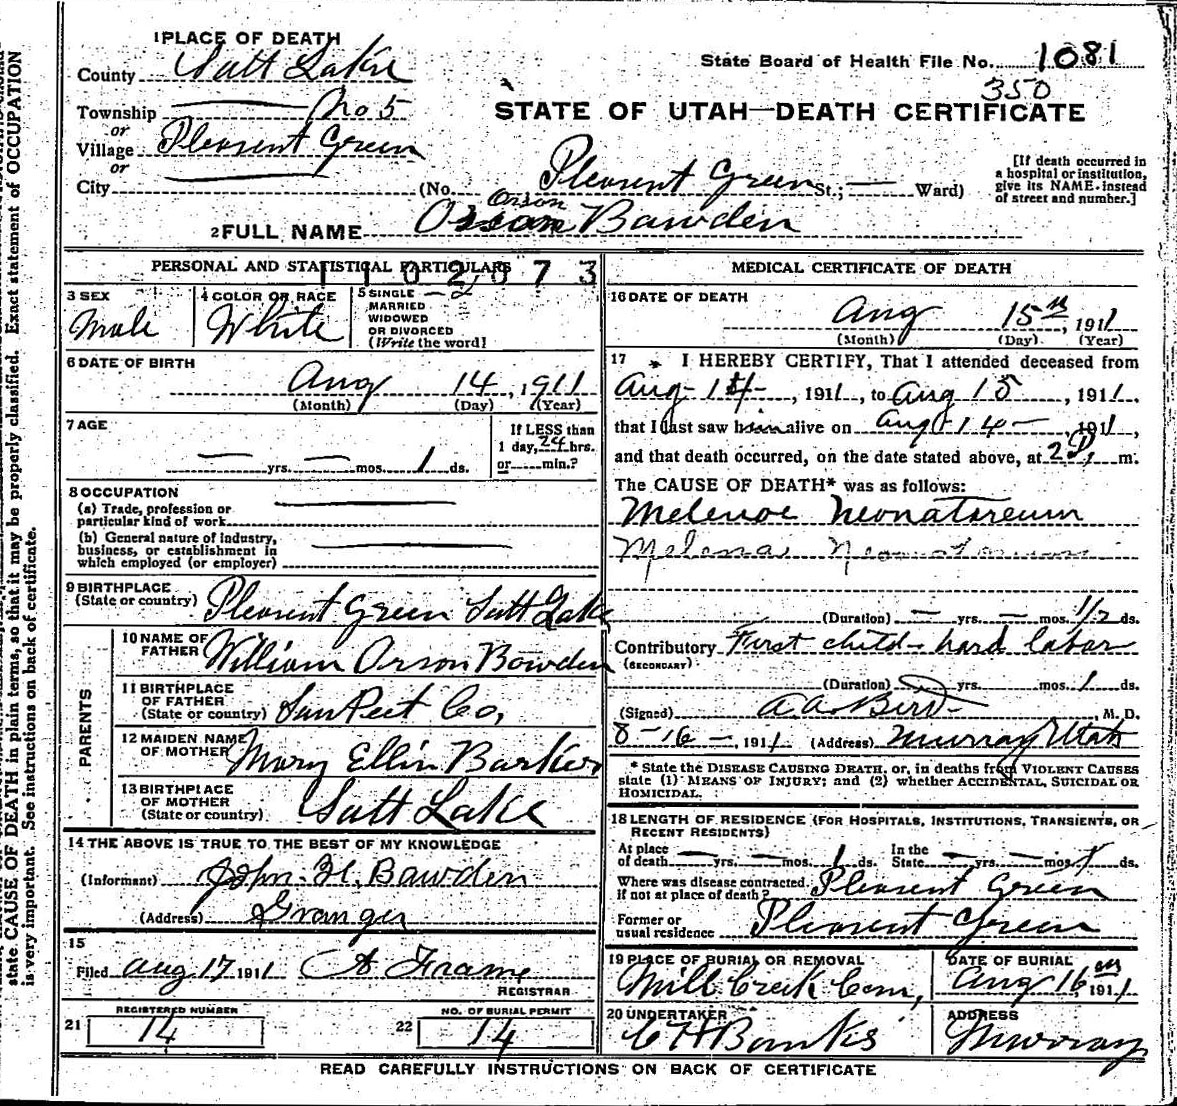 state CAUSE OF DEATH in plain terms, so that it may be properly classified. Exact statement of OCCUPATION
is very important. See instructions on back of certificate.
1 PLACE OF DEATH
County Salt Lake
State Board of Health File No. 1081
350
Township No 5
STATE OF UTAH—DEATH CERTIFICATE
or
Village Pleasent Green
or
City
(No. Pleasent Green St.; Ward)
[If death occurred in
a hospital or institution,
give its NAME instead
of street and number.]
Orson
2 FULL NAME Bawden
PERSONAL AND STATISTICAL PARTICULARS
1102073
3 SEX
Male
4 COLOR OR RACE
White
5 SINGLE
MARRIED
WIDOWED
OR DIVORCED
(Write the word)
6 DATE OF BIRTH
Aug 14, 1911
(Month) (Day) (Year)
7 AGE
— yrs. — mos. 1 ds.
If LESS than
1 day, 24 hrs.
or min.?
8 OCCUPATION
(a) Trade, profession or
particular kind of work
(b) General nature of industry,
business, or establishment in
which employed (or employer)
9 BIRTHPLACE
(State or country) Pleasent Green Salt Lake
PARENTS
10 NAME OF
FATHER William Orson Bowden
11 BIRTHPLACE
OF FATHER
(State or country) SanPeet Co,
12 MAIDEN NAME
OF MOTHER Mary Ellin Barker
13 BIRTHPLACE
OF MOTHER
(State or country) Salt Lake
14 THE ABOVE IS TRUE TO THE BEST OF MY KNOWLEDGE
(Informant) John H. Bawden
(Address) Granger
15
Filed Aug 17 1911 A Frame
REGISTRAR
21
REGISTERED NUMBER
14
22
NO. OF BURIAL PERMIT
14
MEDICAL CERTIFICATE OF DEATH
16 DATE OF DEATH
Aug 15th, 1911
(Month) (Day) (Year)
17 * I HEREBY CERTIFY, That I attended deceased from
Aug 14, 1911, to Aug 15, 1911,
that I last saw him alive on Aug 14, 1911,
and that death occurred, on the date stated above, at 2 P. m.
The CAUSE OF DEATH* was as follows:
Melenoe Neonatoreum
Melena
(Duration) — yrs. — mos. 1/2 ds.
Contributory First child – hard labor
(SECONDARY)
(Duration) yrs. mos. 1 ds.
(Signed) A.A. Bird, M. D.
8-16-, 1911 (Address) Murray Utah
* State the DISEASE CAUSING DEATH, or, in deaths from VIOLENT CAUSES
state (1) MEANS OF INJURY; and (2) whether ACCIDENTAL, SUICIDAL OR
HOMICIDAL.
18 LENGTH OF RESIDENCE (FOR HOSPITALS, INSTITUTIONS, TRANSIENTS, OR
RECENT RESIDENTS)
At place
of death — yrs. — mos. 1 ds. In the
State — yrs. — mos. 1 ds.
Where was disease contracted,
if not at place of death? Pleasent Green
Former or
usual residence Pleasent Green
19 PLACE OF BURIAL OR REMOVAL
Mill Creek Cem,
DATE OF BURIAL
Aug 16th, 1911
20 UNDERTAKER
C H Banks
ADDRESS
Murray
READ CAREFULLY INSTRUCTIONS ON BACK OF CERTIFICATE